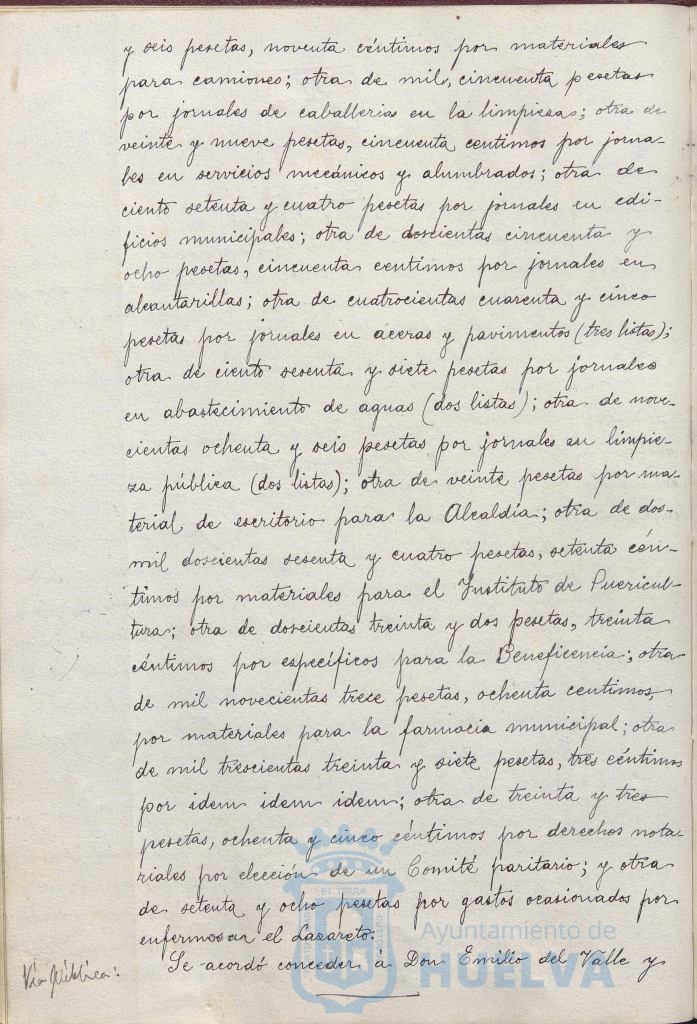 y seis pesetas, noventa céntimos por materiales
para camiones; otra de mil, cincuenta pesetas
por jornales de caballeria en la limpiesa; otra de
veinte y nueve pesetas, cincuenta centimos por jorna-
les en servicios mecánicos y alumbrados; otra de
ciento setenta y cuatro pesetas por jornales en edi-
ficios municipales; otra de doscientas cincuenta y
ocho pesetas, cincuenta centimos por jornales en
alcantarillas; otra de cuatrocientas cuarenta y cinco
pesetas por jornales en aceras y pavimentos (tres listas);
otra de ciento sesenta y siete pesetas por jornales
en abastecimiento de aguas (dos listas); otra de nove-
cientas ochenta y seis pesetas por jornales en limpie-
za pública (dos listas); otra de veinte pesetas por ma-
terial de escritorio para la Alcaldia; otra de dos-
mil doscientas sesenta y cuatro pesetas, setenta cén-
timos por materiales para el Instituto de Puericul-
tura; otra de doscientas treinta y dos pesetas, treinta
céntimos por específicos para la Beneficencia; otra
de mil novecientas trece pesetas, ochenta centimos,
por materiales para la farmacia municipal; otra
de mil trescientas treinta y siete pesetas, tres céntimos
por idem idem idem; otra de treinta y tres
pesetas, ochenta y cinco céntimos por derechos nota-
riales por elección de un Comité paritario; y otra
de setenta y ocho pesetas por gastos ocasionados por
enfermos en el Lazareto.
Vía pública:
Se acordó conceder á Don Emilio del Valle y
Ayuntamiento de
HUELVA